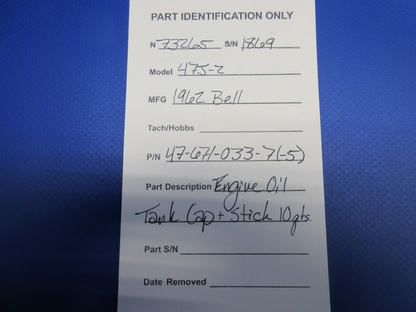 PART IDENTIFICATION ONLY
N 73265 S/N 1869
Model 47J-2
MFG 1962 Bell
Tach/Hobbs
P/N 47-671-033-7(-5)
Part Description Engine Oil
Tank Cap + Stick 10 qts.
Part S/N
Date Removed